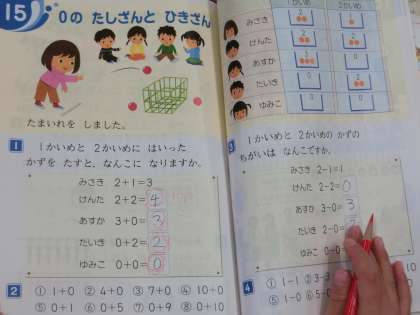 15 0の たしざんと ひきざん
たまいれを しました。
1 1かいめと 2かいめに はいった
かずを たすと、なんこに なりますか。
みさき 2+1=3
けんた 2+2=4
あすか 3+0=3
たいき 0+2=2
ゆみこ 0+0=0
2 ① 1+0 ② 4+0 ③ 7+0 ④ 10+0
⑤ 0+1 ⑥ 0+5 ⑦ 0+9 ⑧ 0+10
1かいめ 2かいめ
みさき 2 1
けんた 2 2
あすか 3 0
たいき 0 2
ゆみこ 0 0
3 1かいめと 2かいめの かずの
ちがいは なんこですか。
みさき 2-1=1
けんた 2-2=0
あすか 3-0=3
たいき 2-0=
ゆみこ 0-0=
4 ① 1-1 ② 3-3
⑤ 1-0 ⑥